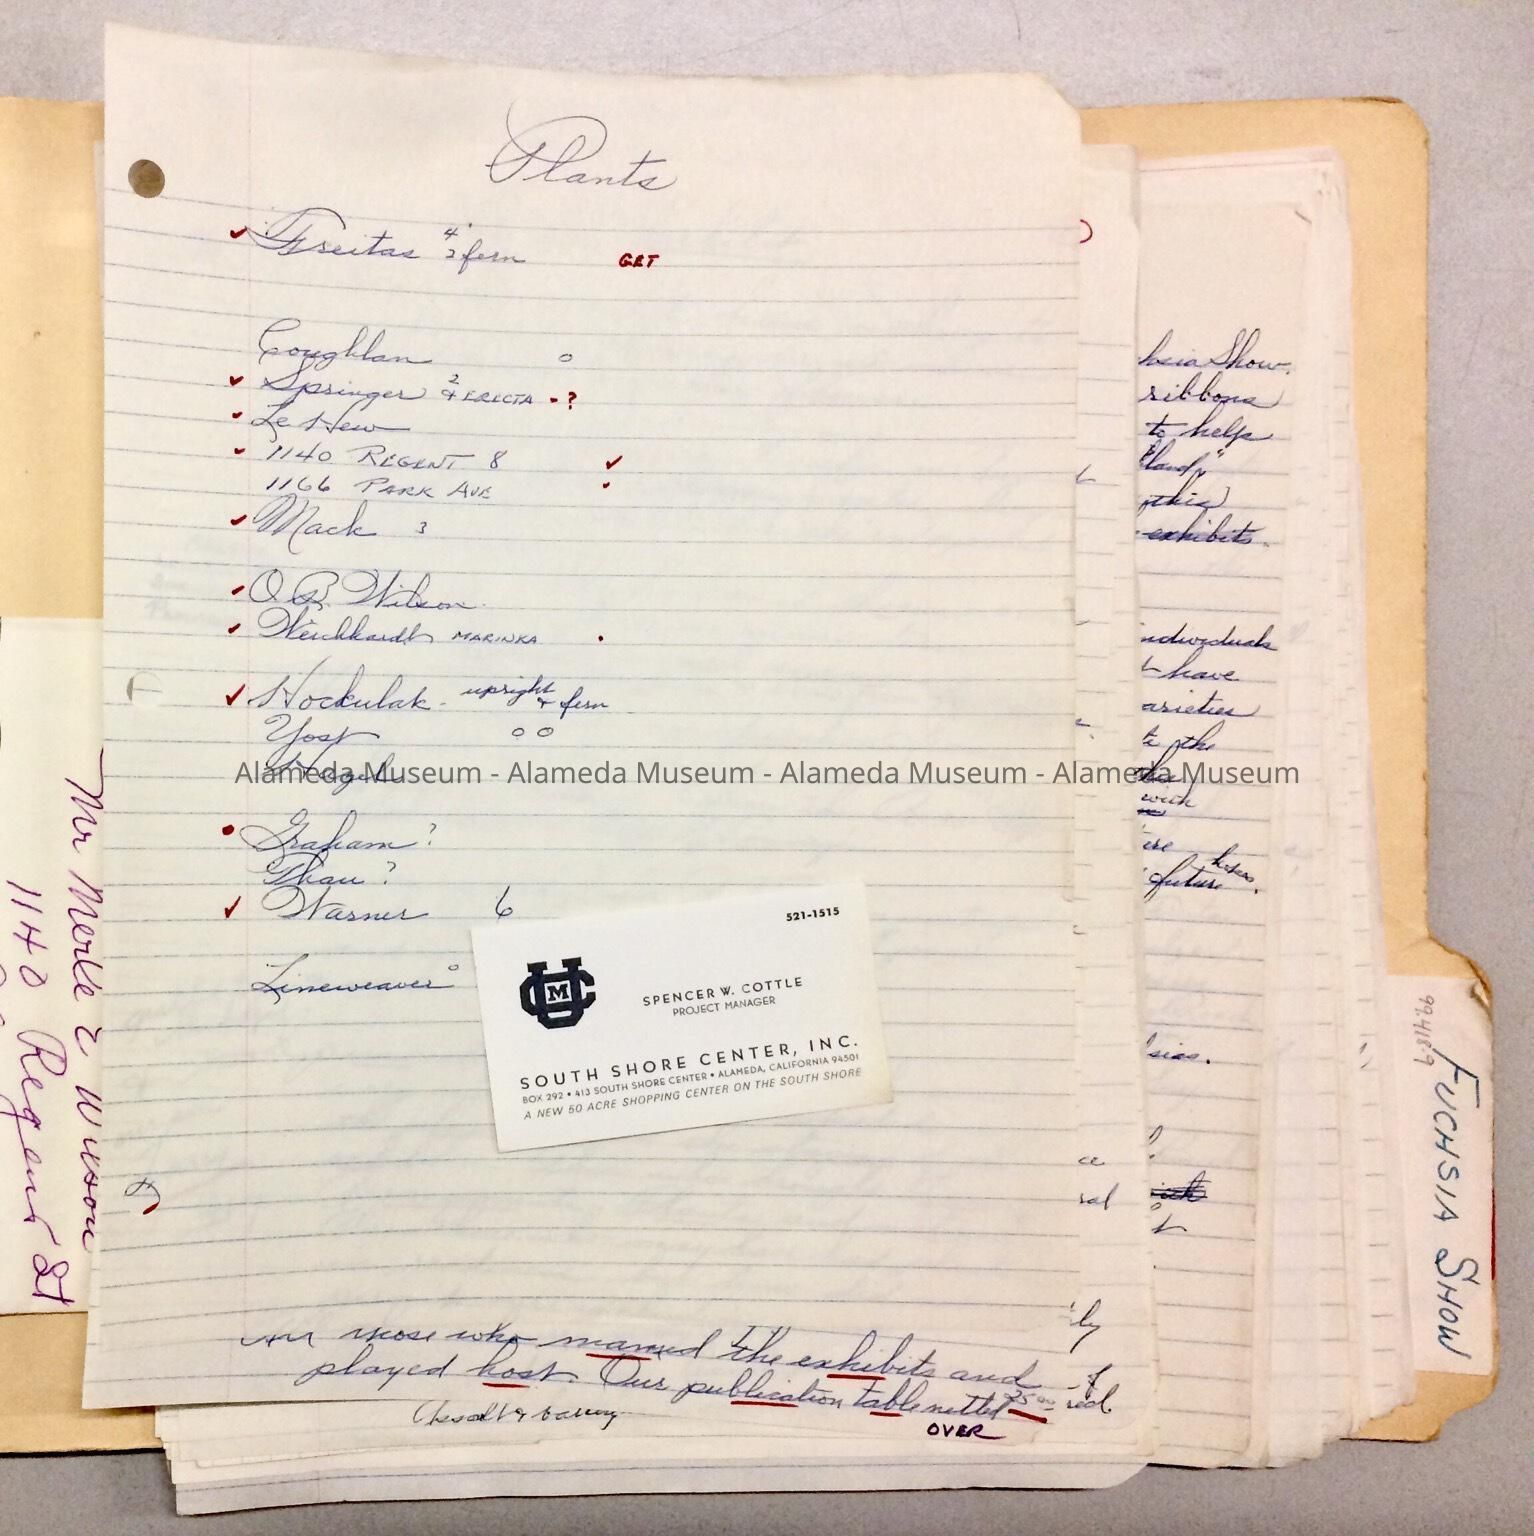 Plants
Freitas 4 2 fern GET
Coughlan o
Springer 2 & ERECTA - ?
Le Hew
1140 REGENT 8
1166 PARK AVE
Mack 3
O. B. Wilson
Weichhardt MARINKA
Hockulak - upright & fern
Yost o o
Graham ?
Thau ?
Warner 6
Lineweaver o
Alameda Museum - Alameda Museum - Alameda Museum - Alameda Museum
521-1515
SPENCER W. COTTLE
PROJECT MANAGER
SOUTH SHORE CENTER, INC.
BOX 292 • 413 SOUTH SHORE CENTER • ALAMEDA, CALIFORNIA 94501
A NEW 50 ACRE SHOPPING CENTER ON THE SOUTH SHORE
those who manned the exhibits and
played host. Our publication table netted 35.00
OVER
Show.
ribbons
to help
this
exhibits.
have
to the
with
future
Mr Merle E Wilson
1140 Regent St
994189
FUCHSIA SHOW